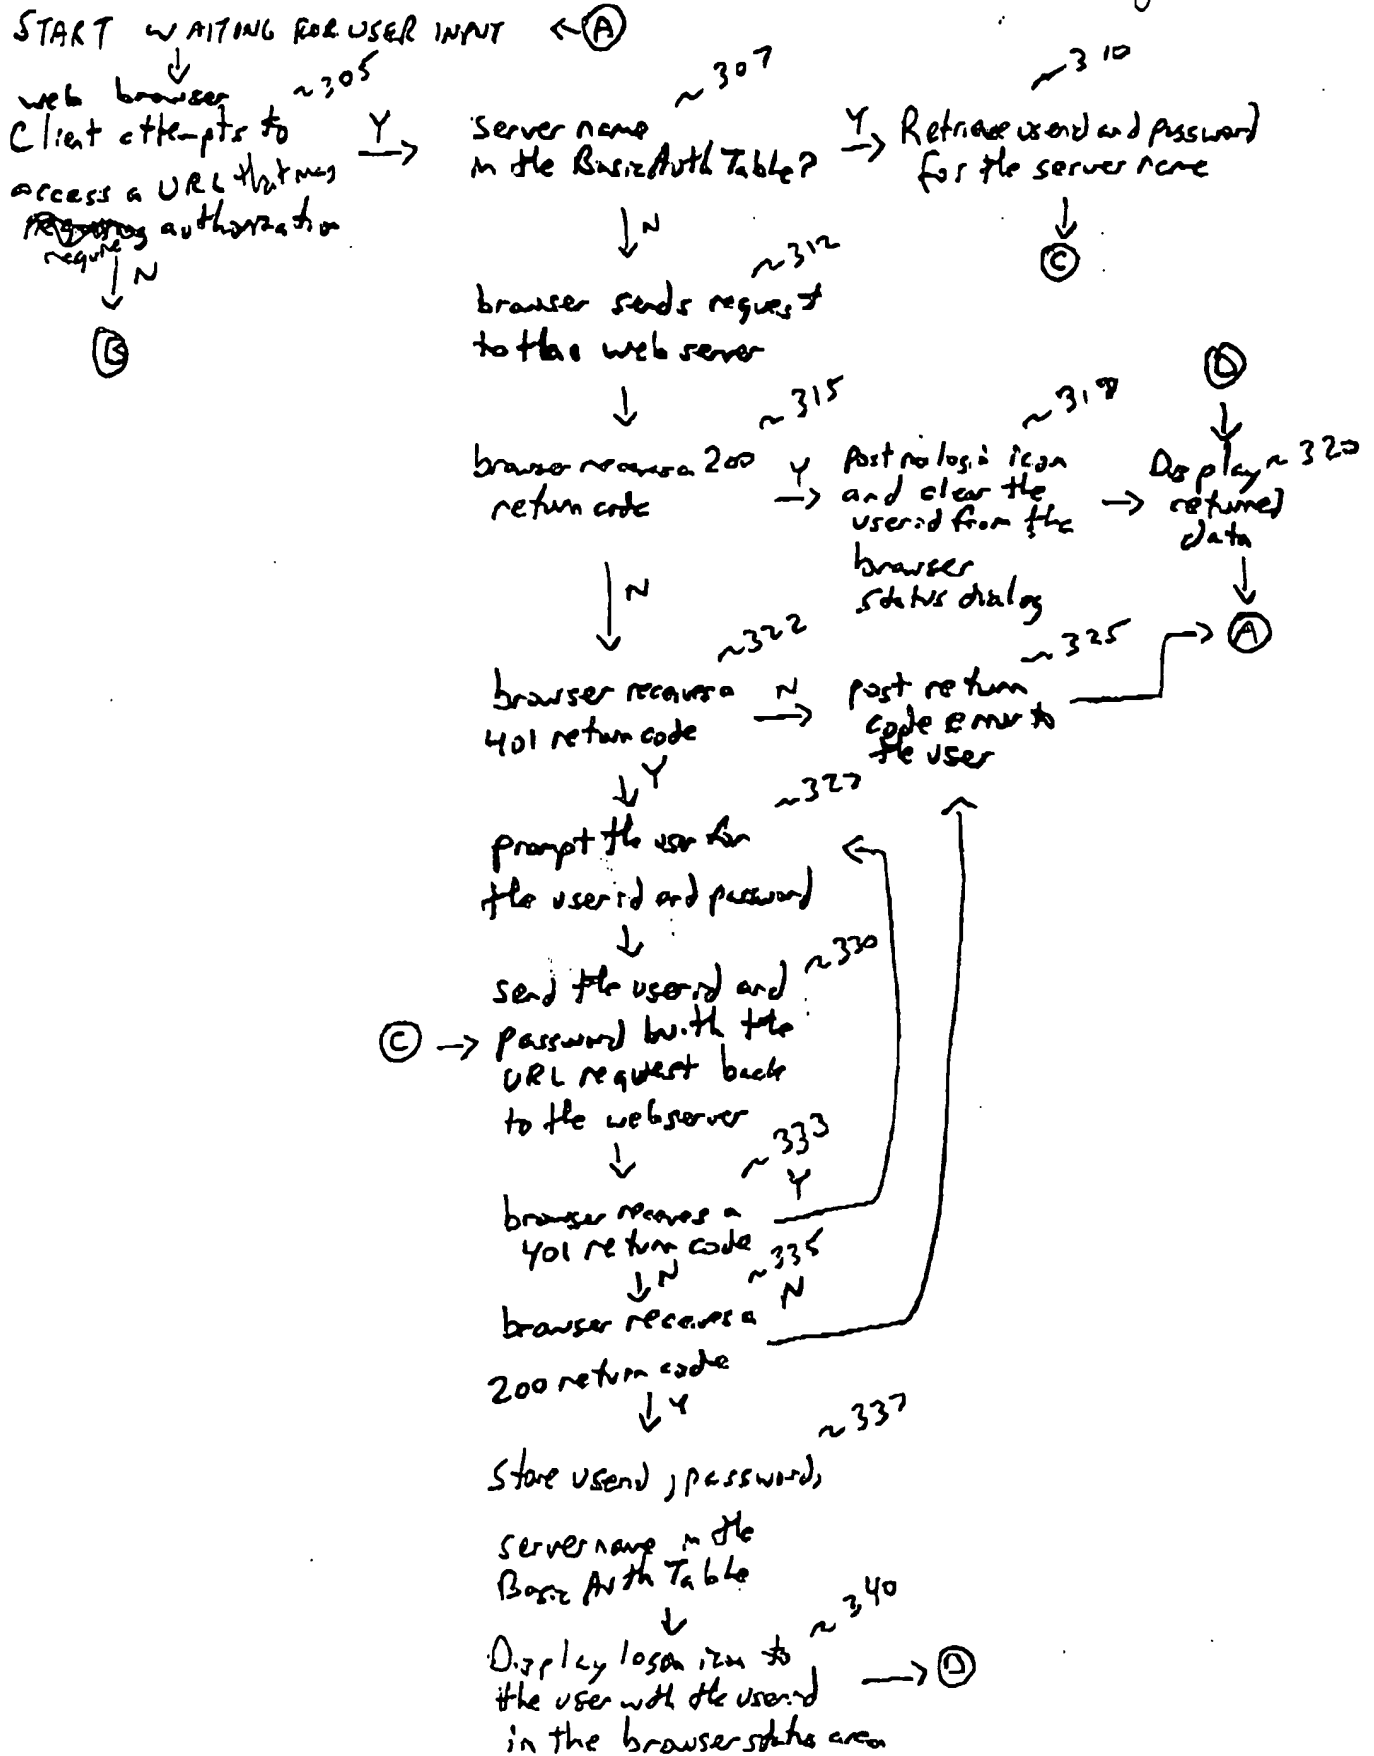 START WAITING FOR USER INPUT ← A
~305
web browser
Client attempts to
access a URL that may
require authorization
Y
N
B
~307
server name
in the Basic Auth Table?
Y
N
~310
Retrieve userid and password
for the server name
C
~312
browser sends request
to the web server
~315
browser receives a 200
return code
Y
N
~318
Post no login icon
and clear the
userid from the
browser
status dialog
D
~320
Display
returned
data
A
~322
browser receives a
401 return code
N
Y
~325
post return
code error to
the user
~327
prompt the user for
the userid and password
~330
send the userid and
C → password with the
URL request back
to the webserver
~333
browser receives a
401 return code
Y
N
~335
browser receives a
200 return code
N
Y
~337
Store userid, password,
server name in the
Basic Auth Table
~340
Display logon icon to
the user with the userid
in the browser status area
D